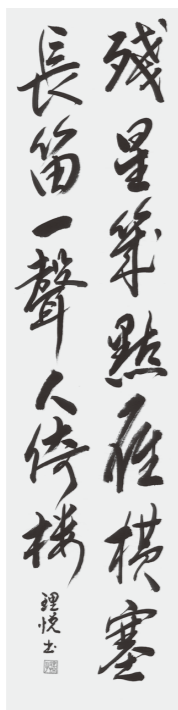 殘星幾點雁橫塞
長笛一聲人倚楼
理悦书